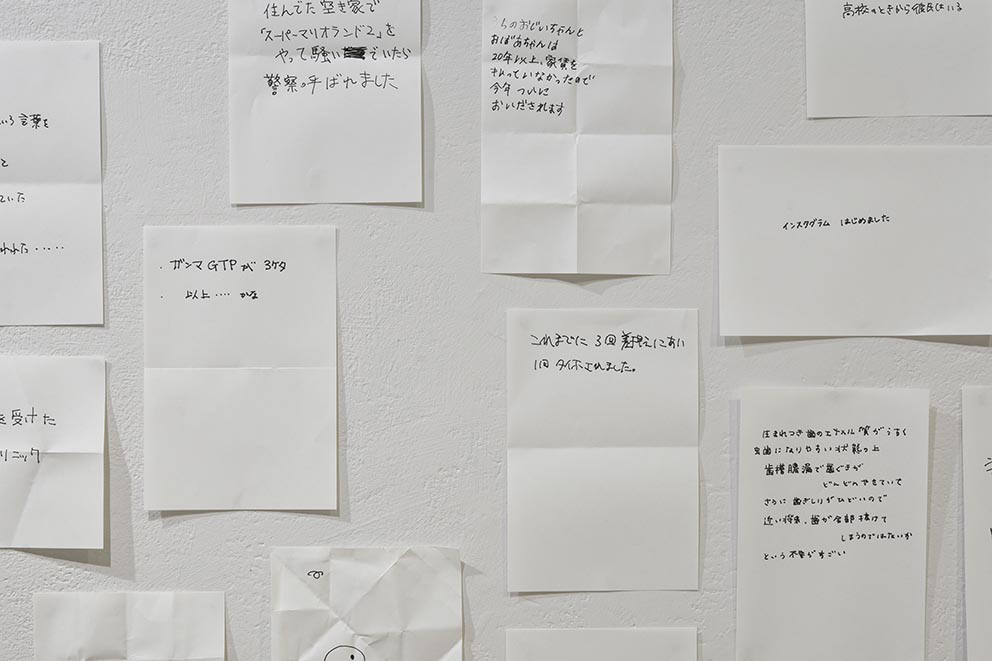 住んでた空き家で
「スーパーマリオランド2」を
やって騒いでいたら
警察呼ばれました
うちのおじいちゃんと
おばあちゃんは
20年以上、家賃を
払っていなかったので
今年 ついに
おいだされます
高校のときから彼氏がいる
いう言葉を
と
ていた
われた・・・・・
インスタグラム はじめました
・ガンマGTPが 3ケタ
・以上・・・・かな
これまでに 3回 差押えにあい
1回 タイホされました。
を受けた
リニック
生まれつき歯のエナメル質がうすく
虫歯になりやすい状態の上
歯槽膿漏で歯ぐきが
どんどんやせていて
さらに 歯ぎしりがひどいので
近い将来、歯が全部抜けて
しまうのではないか
という不安がすごい